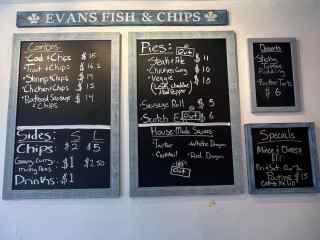 EVANS FISH & CHIPS
Combos:
• Cod & Chips $15
• Trout & Chips $14.5
• Shrimp & Chips $14
• Chicken & Chips $15
• Battered Sausage & Chips $14
Sides: S L
Chips: $2 $5
Gravy, Curry, Mushy Peas $1 $2.50
Drinks: $1
Pies: out
• Steak & Ale $11
• Chicken Curry $10
• Veggie $10
(Leek, Cheddar, Red Pepper)
Sausage Roll $5
Scotch E out $6
House-Made Sauces
• Tartar • White Dragon
• Cocktail • Red Dragon
out
Desserts
• Sticky Toffee Pudding
• Butter Tarts
$6
Specials
Mince & Cheese
$11
Fri & Sat
Poutine $15